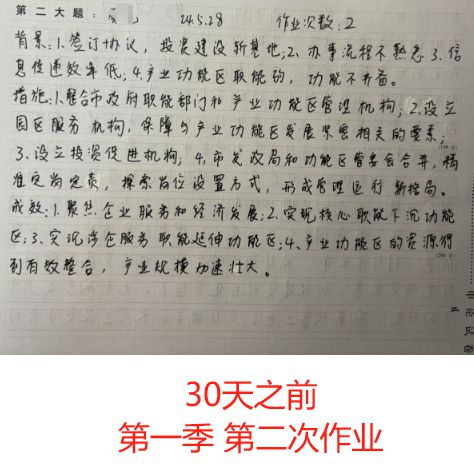 第二大题: 24.5.28 作业次数:2
背景:1.签订协议,投资建设新基地;2、办事流程不熟悉 3.信
息传递效率低;4.产业功能区职能弱,功能不齐备。
措施:1.整合市政府职能部门和产业功能区管理机构;2.设立
园区服务机构,保障与产业功能区发展紧密相关的要素;
3.设立投资促进机构;4.市发改局和功能区管委会合并,精
准定岗定责,探索岗位设置方式,形成管理运行新格局。
成效:1.聚焦企业服务和经济发展;2.实现核心职能下沉功能
区;3.实现涉企服务职能延伸功能区;4.产业功能区的资源得
到有效整合,产业规模加速壮大。
30天之前
第一季 第二次作业